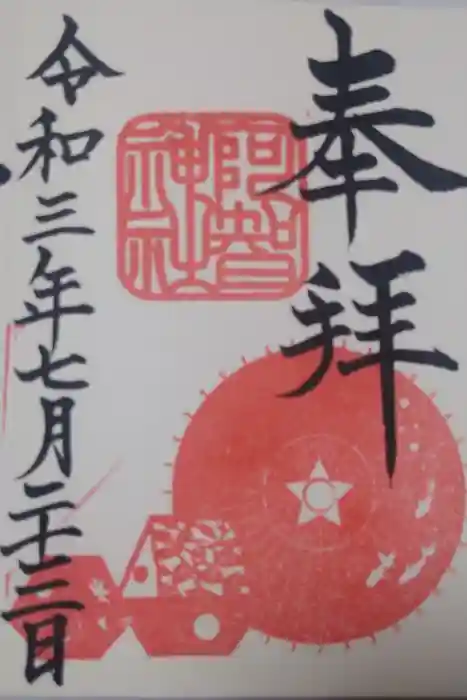 奉拝
阿智神社
令和三年七月二十三日